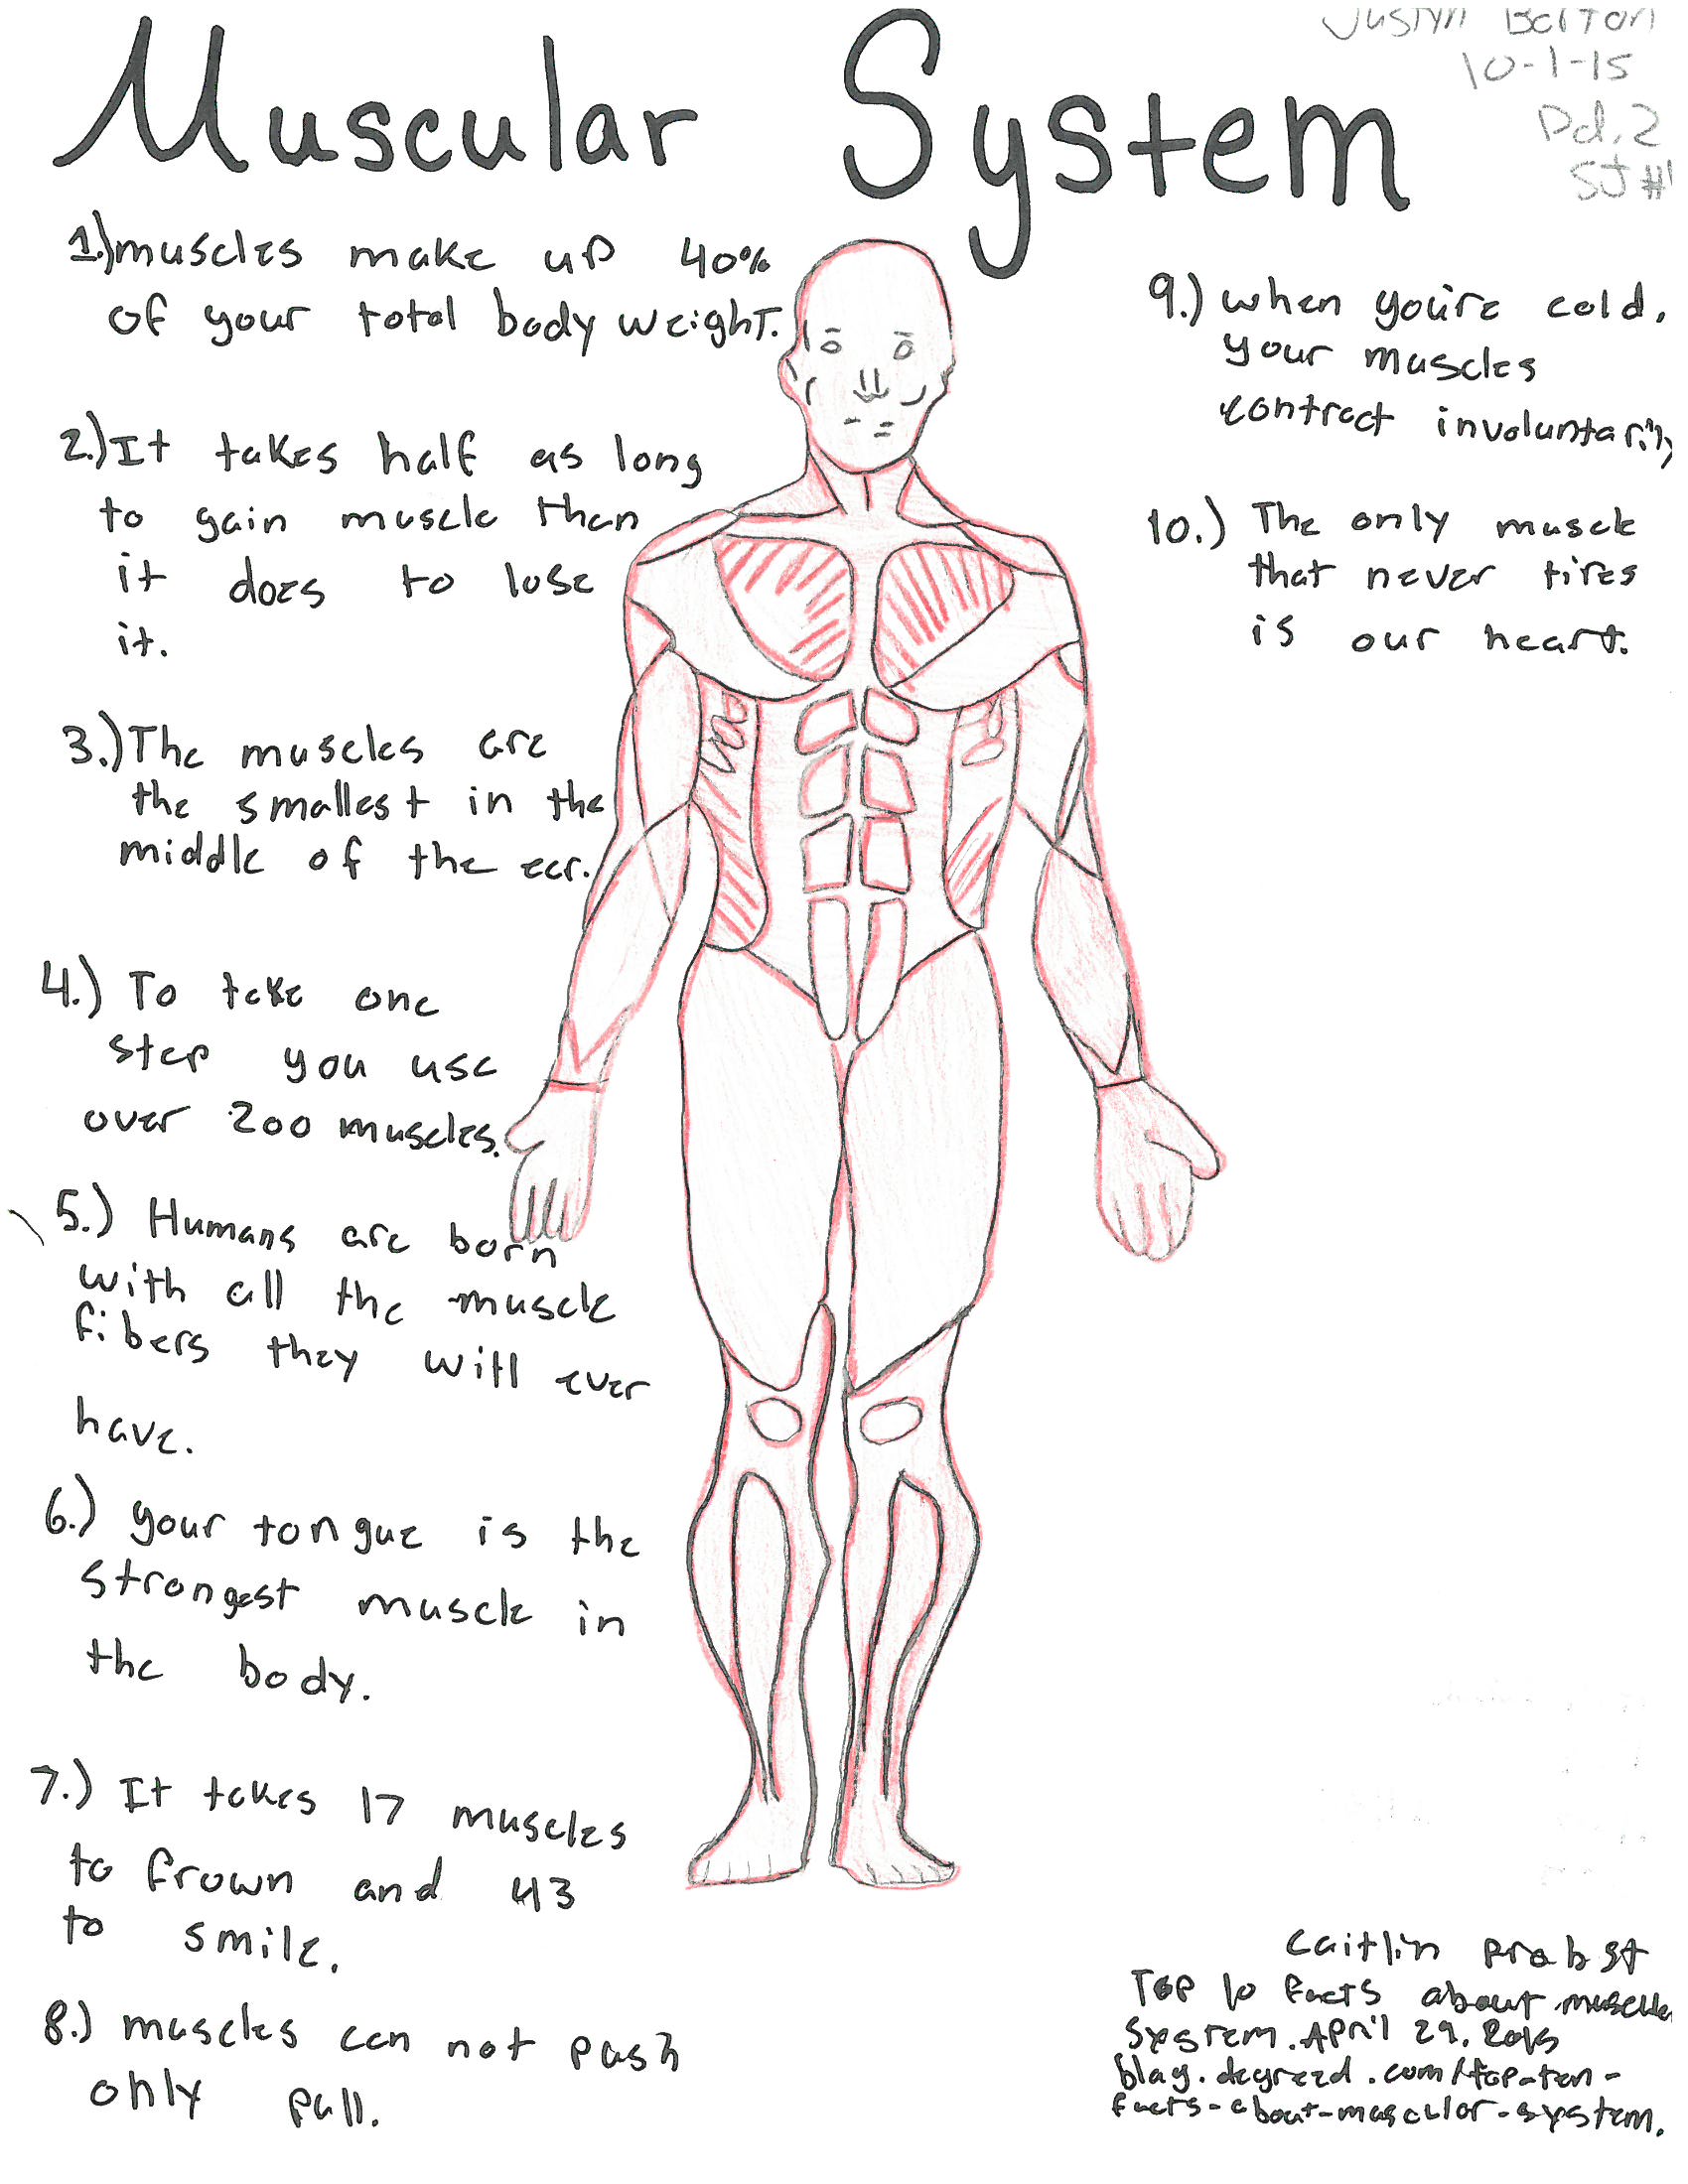 Muscular System
Justyn Barton
10-1-15
Pd. 2
SJ #1
1.) muscles make up 40%
of your total body weight.
2.) It takes half as long
to gain muscle than
it does to lose
it.
3.) The muscles are
the smallest in the
middle of the ear.
4.) To take one
step you use
over 200 muscles.
5.) Humans are born
with all the muscle
fibers they will ever
have.
6.) your tongue is the
strongest muscle in
the body.
7.) It takes 17 muscles
to frown and 43
to smile.
8.) muscles can not push
only pull.
9.) when you're cold,
your muscles
contract involuntarily
10.) The only muscle
that never tires
is our heart.
Caitlin Probst
Top 10 facts about muscular
System. April 29, 2015
blog.degreed.com/top-ten-
facts-about-muscular-system.